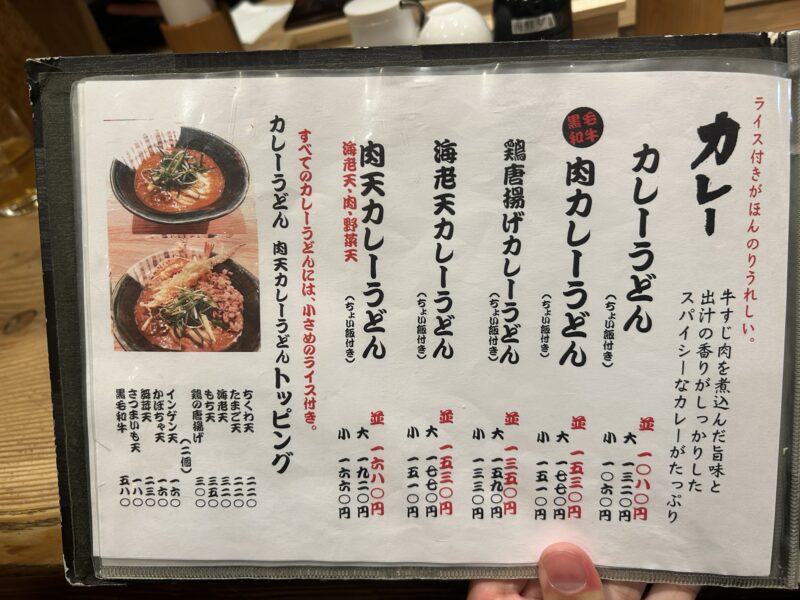 ライス付きがほんのりうれしい。
カレー
牛すじ肉を煮込んだ旨味と
出汁の香りがしっかりした
スパイシーなカレーがたっぷり
カレーうどん
(ちょい飯付き)
並 一〇八〇円
大 一三二〇円
小 一〇六〇円
黒毛
和牛
肉カレーうどん
(ちょい飯付き)
並 一五三〇円
大 一七七〇円
小 一五一〇円
鶏唐揚げカレーうどん
(ちょい飯付き)
並 一三五〇円
大 一五九〇円
小 一三三〇円
海老天カレーうどん
(ちょい飯付き)
並 一五三〇円
大 一七七〇円
小 一五一〇円
肉天カレーうどん
(ちょい飯付き)
海老天・肉・野菜天
並 一六八〇円
大 一九二〇円
小 一六六〇円
すべてのカレーうどんには、小さめのライス付き。
カレーうどん 肉天カレーうどん トッピング
ちくわ天 二二〇
たまご天
海老天
もち天
鶏の唐揚げ(二個) 三〇〇
インゲン天 一六〇
かぼちゃ天 一六〇
舞茸天 二三〇
さつまいも天 一八〇
黒毛和牛 五八〇